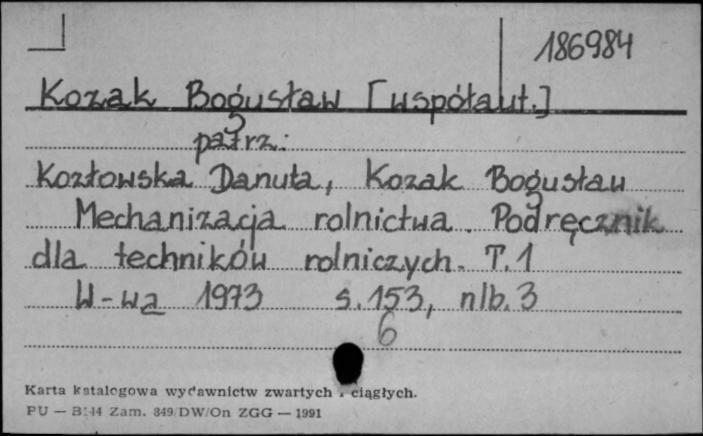 186984
Kozak Bogusław [współaut.]
patrz:
Kozłowska Danuta, Kozak Bogusław
Mechanizacja rolnictwa. Podręcznik
dla techników rolniczych. T. 1
W-wa 1973 s. 153, nlb. 3
6
Karta katalogowa wydawnictw zwartych i ciągłych.
PU — B/44 Zam. 849/DW/On ZGG — 1991